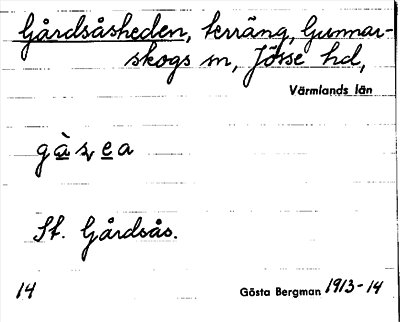 Gårdsåsheden, terräng, Gunnar-
skogs sn, Jösse hd,
Värmlands län
St. Gårdsås.
14
Gösta Bergman 1913-14